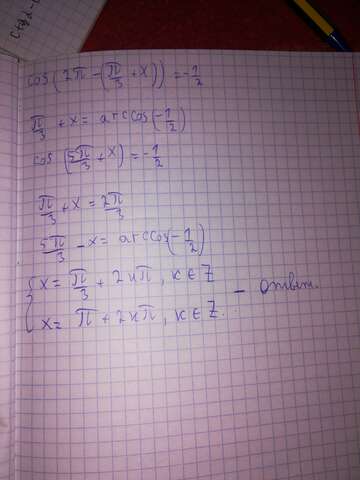 ctg d - 
cos(2π - (π/3 + x)) = -1/2
π/3 + x = arccos(-1/2)
cos(5π/3 + x) = -1/2
π/3 + x = 2π/3
5π/3 - x = arccos(-1/2)
{ x = π/3 + 2kπ, k ∈ Z
x = π + 2kπ, k ∈ Z. - ответ.